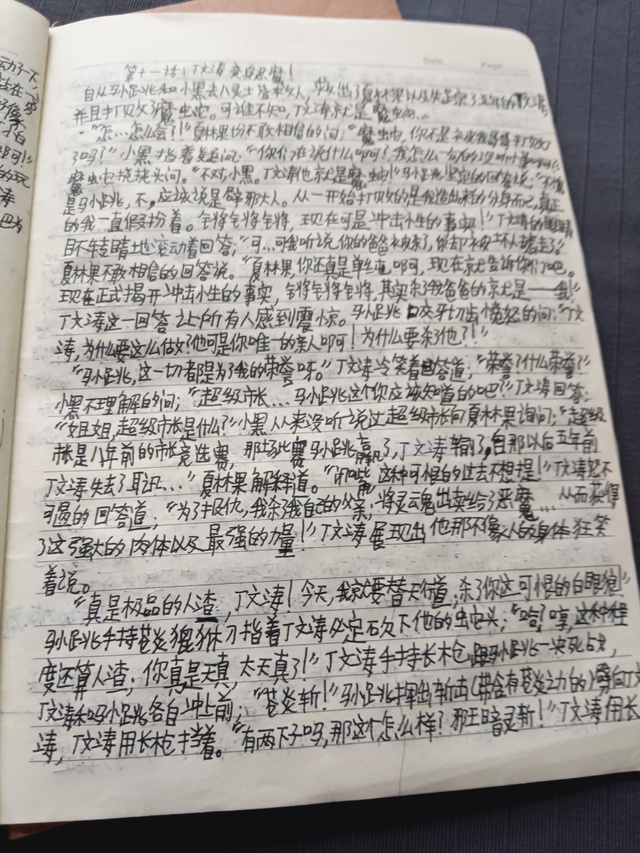 Date Page
第十一话:丁文涛变白眼魔!
自从马小跳和小黑去八叉土洛束女人,救出了夏林果以及失踪了五年的丁文涛
并且打败了魔虫蛇。可谁不知,丁文涛就是魔虫蛇…
"怎…怎么会?!"夏林果不敢相信的问;"魔虫蛇,你不是
了吗?"小黑指着疑问。"你们在说什么啊?我怎么一句
魔虫蛇挠挠头问。"不对小黑。丁文涛他就是魔虫蛇!"马小跳坚定的回答说。"不愧
是马小跳,不,应该说是辟邪大人。从一开始打败的是我造出来的分身而已,真正
的我一直假扮着。锵锵锵锵,现在可是冲击小生的事实!"丁文涛的眼睛
目不转睛地滚动着回答;"可…可我听说,你的爸爸被杀了,你却不被坏人掳走了?"
夏林果不敢相信的回答说。"夏林果,你还真是单纯啊,现在京尤告诉你们吧。
现在正式揭开冲击小生的事实,锵锵锵锵,其实杀我爸爸的京尤是——我!"
丁文涛这一回答让所有人感到震惊。马小跳咬牙切齿愤怒的问:"丁文
涛,为什么要这么做?他可是你唯一的亲人啊!为什么要杀了他?!"
"马小跳,这一切都是为了我的荣誉呀。"丁文涛冷笑着回答道;"荣誉?什么荣誉?"
小黑不理解的问;"超级市长…马小跳这个你应该知道的吧?"丁文涛回答:
"姐姐,超级市长是什么?"小黑从来没听说过超级市长向夏林果询问;"超级
市长是八年前的市长竞选赛,那场比赛马小跳赢了,丁文涛输了,自那以后五年前
丁文涛失去了耳识…"夏林果解释道。"闭嘴,这种可恨的过去不想提!"丁文涛怒不
可遏的回答道,"为了报仇,我杀了我自己的父亲,将灵魂出卖给了恶魔…从而获得
了这强大的肉体以及最强的力量!"丁文涛展现出他那不像人的身体狂笑
着说。
"真是极品的人渣,丁文涛!今天,我京尤要替天行道,杀了你这可恨的白眼狼!"
马小跳手持苍炎貔貅刀指着丁文涛必定砍下他的虫它头;"哈?哼,这种程
度还算人渣;你真是天真,太天真了!"丁文涛手持长枪,跟马小跳一决死战,
丁文涛和马小跳各自冲上前;"苍炎斩!"马小跳挥出斩击(带含有苍炎之力的)劈向丁文
涛,丁文涛用长枪挡着。"有两下子吗,那这个怎么样?邪王暗灵斩!"丁文涛用长